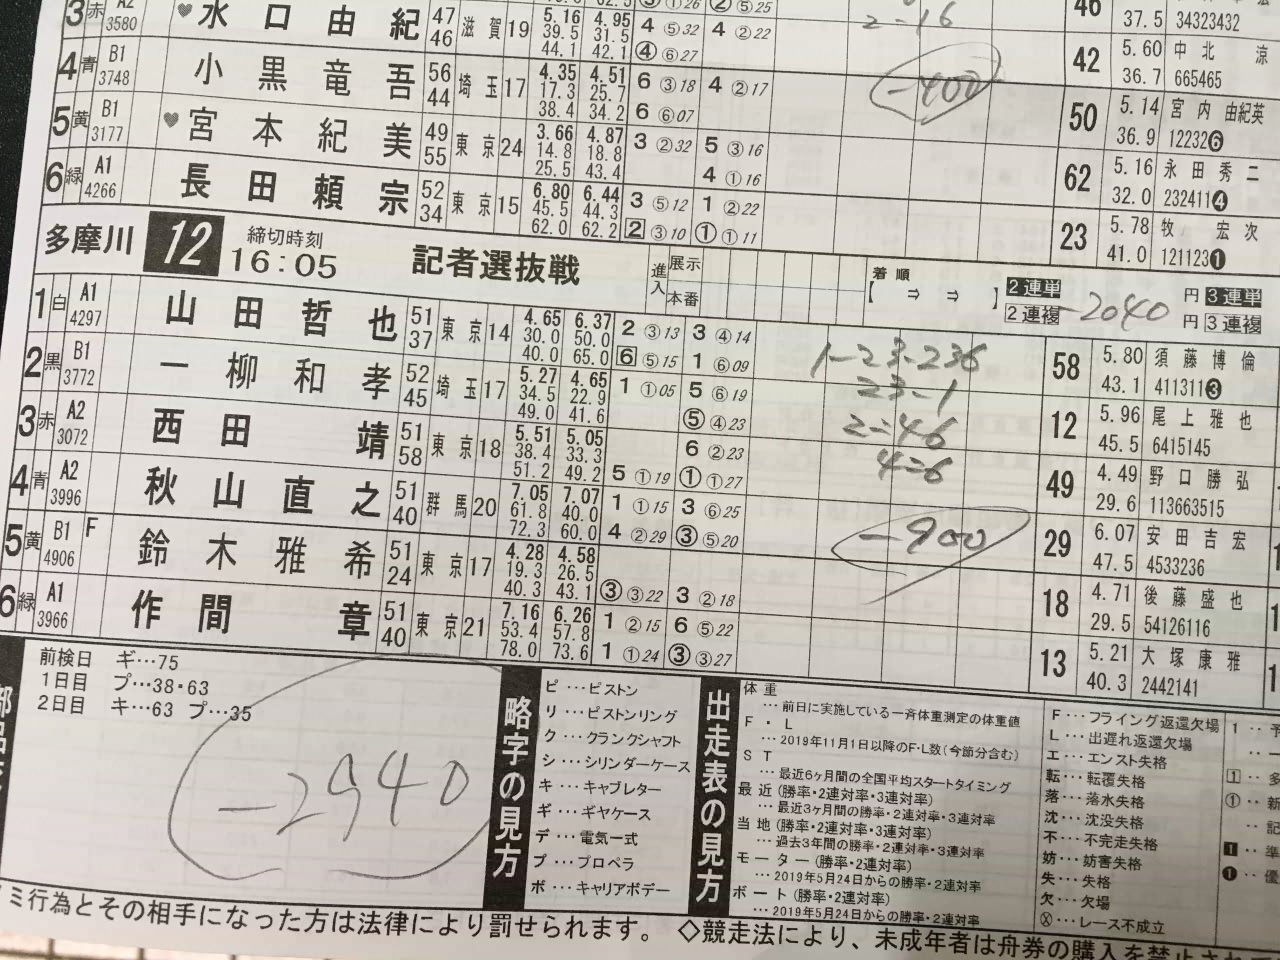 3 赤 A2 3580 ♥水口由紀 47 46 滋賀 19 5.16 39.5 44.1 4.95 31.5 42.1 4 ⑤32 ④ ⑥27 4 ②22
2-16
46 37.5 34323432
4 青 B1 3748 小黒竜吾 56 44 埼玉 17 4.35 17.3 38.4 4.51 25.7 34.2 6 ③18 6 ⑥07 4 ②17
-400
42 5.60 36.7 中北 涼 665465
5 黄 B1 3177 ♥宮本紀美 49 55 東京 24 3.66 14.8 25.5 4.87 18.8 43.4 3 ②32 5 ③16 4 ①16
50 5.14 36.9 宮内 由紀英 12232❻
6 緑 A1 4266 長田頼宗 52 34 東京 15 6.80 45.5 62.0 6.44 44.3 62.2 3 ⑤12 2 ③10 1 ②22 ① ①11
62 5.16 32.0 永田秀二 232411❹
23 5.78 41.0 牧 宏次 121123❶
多摩川 12 締切時刻 16:05 記者選抜戦 進入 展示 本番 着順 【 ⇒ ⇒ 】 2連単 2連複 -2040 円 円 3連単 3連複
1 白 A1 4297 山田哲也 51 37 東京 14 4.65 30.0 40.0 6.37 50.0 65.0 2 ③13 6 ⑤15 3 ④14 1 ⑥09
1-23-236
58 5.80 43.1 須藤博倫 411311❸
2 黒 B1 3772 一柳和孝 52 45 埼玉 17 5.27 34.5 49.0 4.65 22.9 41.6 1 ①05 5 ⑥19 ⑤ ④23
23-1
12 5.96 45.5 尾上雅也 6415145
3 赤 A2 3072 西田 靖 51 58 東京 18 5.51 38.4 51.2 5.05 33.3 49.2 5 ①19 6 ②23 ① ①27
2=46
4=6
49 4.49 29.6 野口勝弘 113663515
4 青 A2 3996 秋山直之 51 40 群馬 20 7.05 61.8 72.3 7.07 40.0 60.0 1 ①15 4 ②29 3 ⑥25 ③ ⑤20
-900
29 6.07 47.5 安田吉宏 4533236
5 黄 B1 4906 F 鈴木雅希 51 24 東京 17 4.28 19.3 40.3 4.58 26.5 43.1 ③ ③22 3 ②18
18 4.71 29.5 後藤盛也 54126116
6 緑 A1 3966 作間 章 51 40 東京 21 7.16 53.4 78.0 6.26 57.8 73.6 1 ②15 1 ①24 6 ⑤22 ③ ③27
13 5.21 40.3 大塚康雅 2442141
前検日 ギ…75
1日目 プ…38・63
2日目 キ…63 プ…35
-2940
略字の見方
ピ…ピストン
リ…ピストンリング
ク…クランクシャフト
シ…シリンダーケース
キ…キャブレター
ギ…ギヤケース
デ…電気一式
プ…プロペラ
ボ…キャリアボデー
出走表の見方
体重
…前日に実施している一斉体重測定の体重値
F・L
…2019年11月1日以降のF・L数(今節分含む)
ST
…最近6ヶ月間の全国平均スタートタイミング
最近(勝率・2連対率・3連対率)
…最近3ヶ月間の勝率・2連対率・3連対率
当地(勝率・2連対率・3連対率)
…過去3年間の勝率・2連対率・3連対率
モーター(勝率・2連対率)
…2019年5月24日からの勝率・2連対率
ボート(勝率・2連対率)
…2019年5月24日からの勝率・2連対率
F…フライング返還欠場
L…出遅れ返還欠場
エ…エンスト失格
転…転覆失格
落…落水失格
沈…沈没失格
不…不完走失格
妨…妨害失格
失…失格
欠…欠場
Ⓧ…レース不成立
ノミ行為とその相手になった方は法律により罰せられます。 ◇競走法により、未成年者は舟券の購入を禁止され